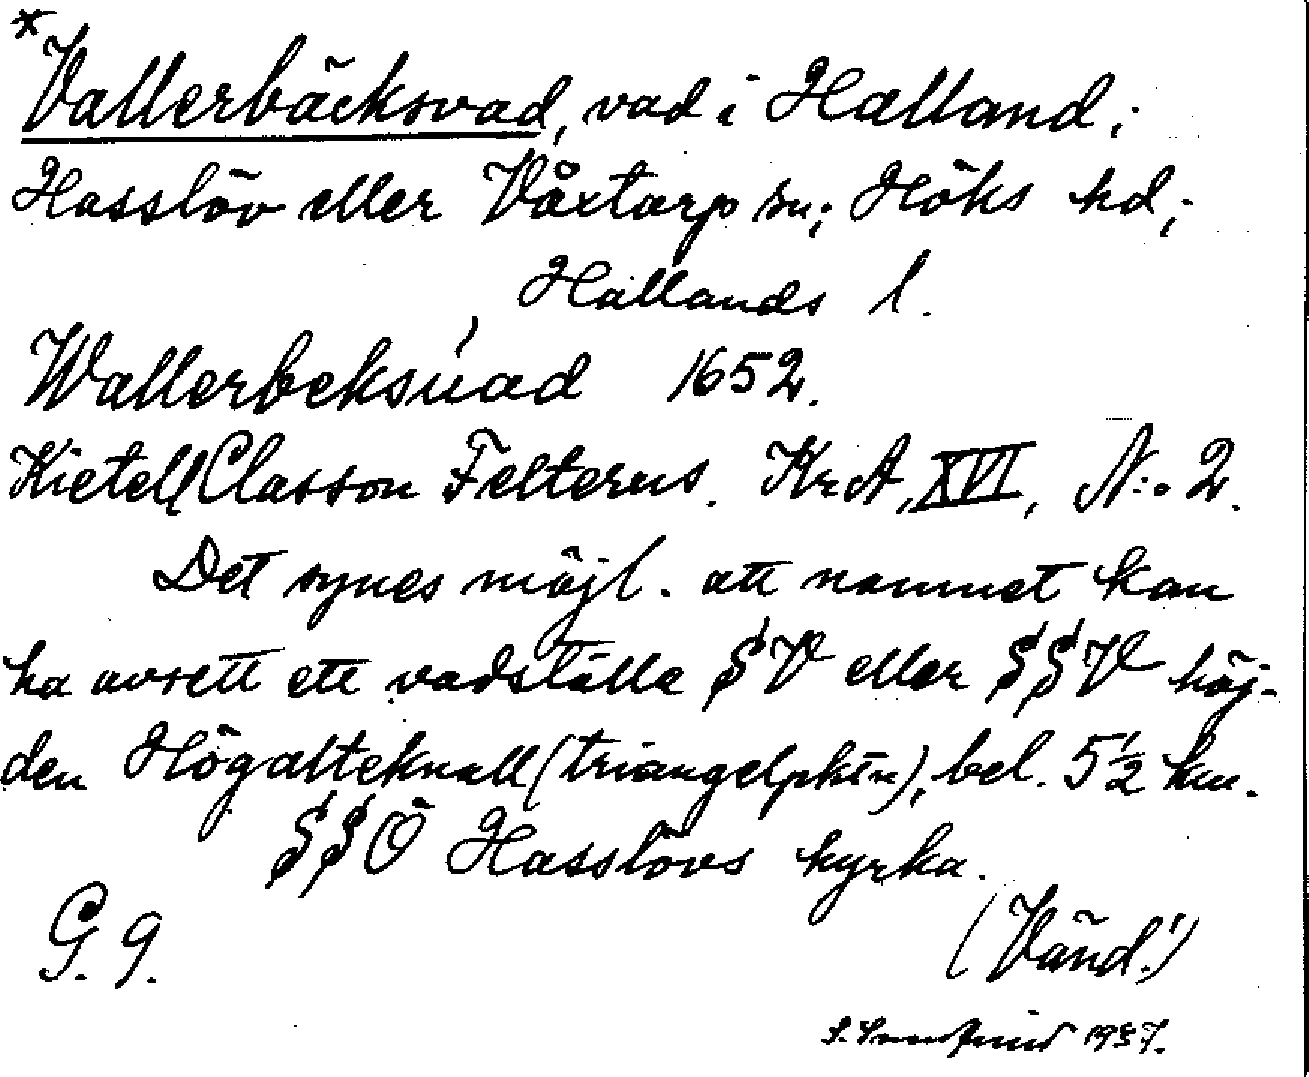 * Vallerbäcksvad, vad i Halland;
Hasslöv eller Våxtorp sn; Höks hd;
Hallands l.
Wallerbeksuad 1652.
Kietell Classon Felterus. KrA, XVI, N:o 2.
Det synes möjl. att namnet kan
ha avsett ett vadställe SV eller SSV höj-
den Högalteknall (triangelpktn), bel. 5½ km.
SSÖ Hasslövs kyrka.
G. 9.
(Vänd!)
1937.